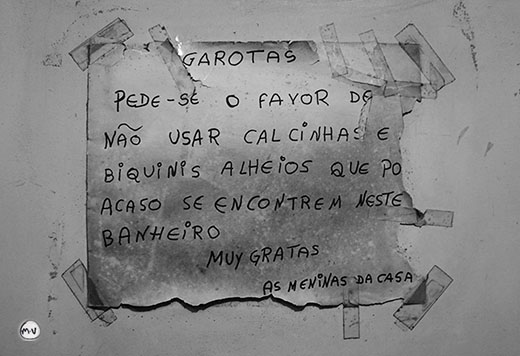 GAROTAS
PEDE-SE O FAVOR DE
NÃO USAR CALCINHAS E
BIQUINIS ALHEIOS QUE PO
ACASO SE ENCONTREM NESTE
BANHEIRO
MUY GRATAS
AS MENINAS DA CASA
M.V